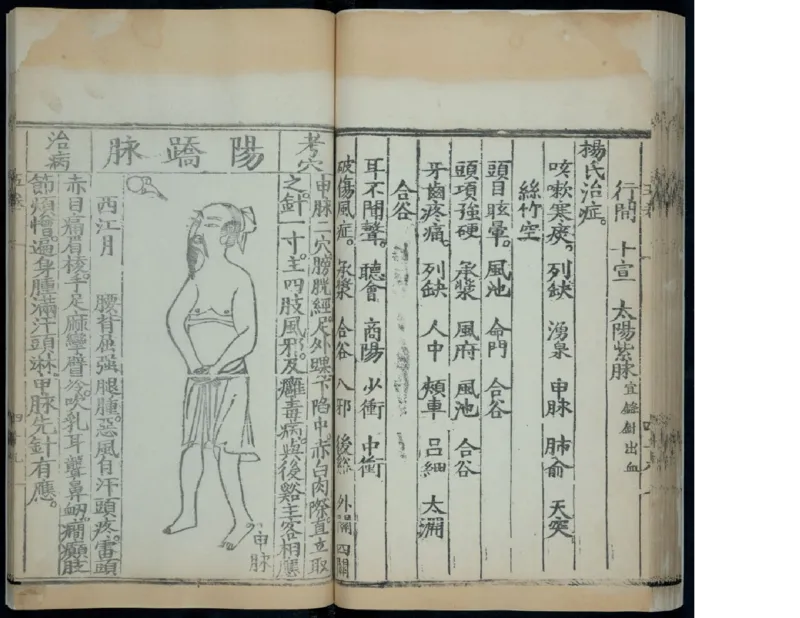 行間 十宣 太陽紫脉宜鋒針出血
楊氏治症。
咳嗽寒痰。列缺 湧泉 申脉 肺俞 天突
絲竹空
頭目眩暈。風池 命門 合谷
頭項強硬 承漿 風府 風池 合谷
牙齒疼痛。列缺 人中 頰車 呂細 太淵
合谷
耳不聞聲。聽會 商陽 少衝 中衝
破傷風症。承漿 合谷 八邪 後谿 外關 四關
考穴
申脉二穴膀胱經。足外踝下陷中。赤白肉際。直立取
之針一寸。主四肢風邪。及癰毒病。與後谿主客相應
陽蹻脉
申脉
治病
西江月 腰背屈强腿腫。惡風自汗頭疼。雷頭
赤目痛眉稜。手足麻攣臂冷。吹乳耳聾鼻衄。癇癲肢
節煩憎。遍身腫滿汗頭淋。申脉先針有應。